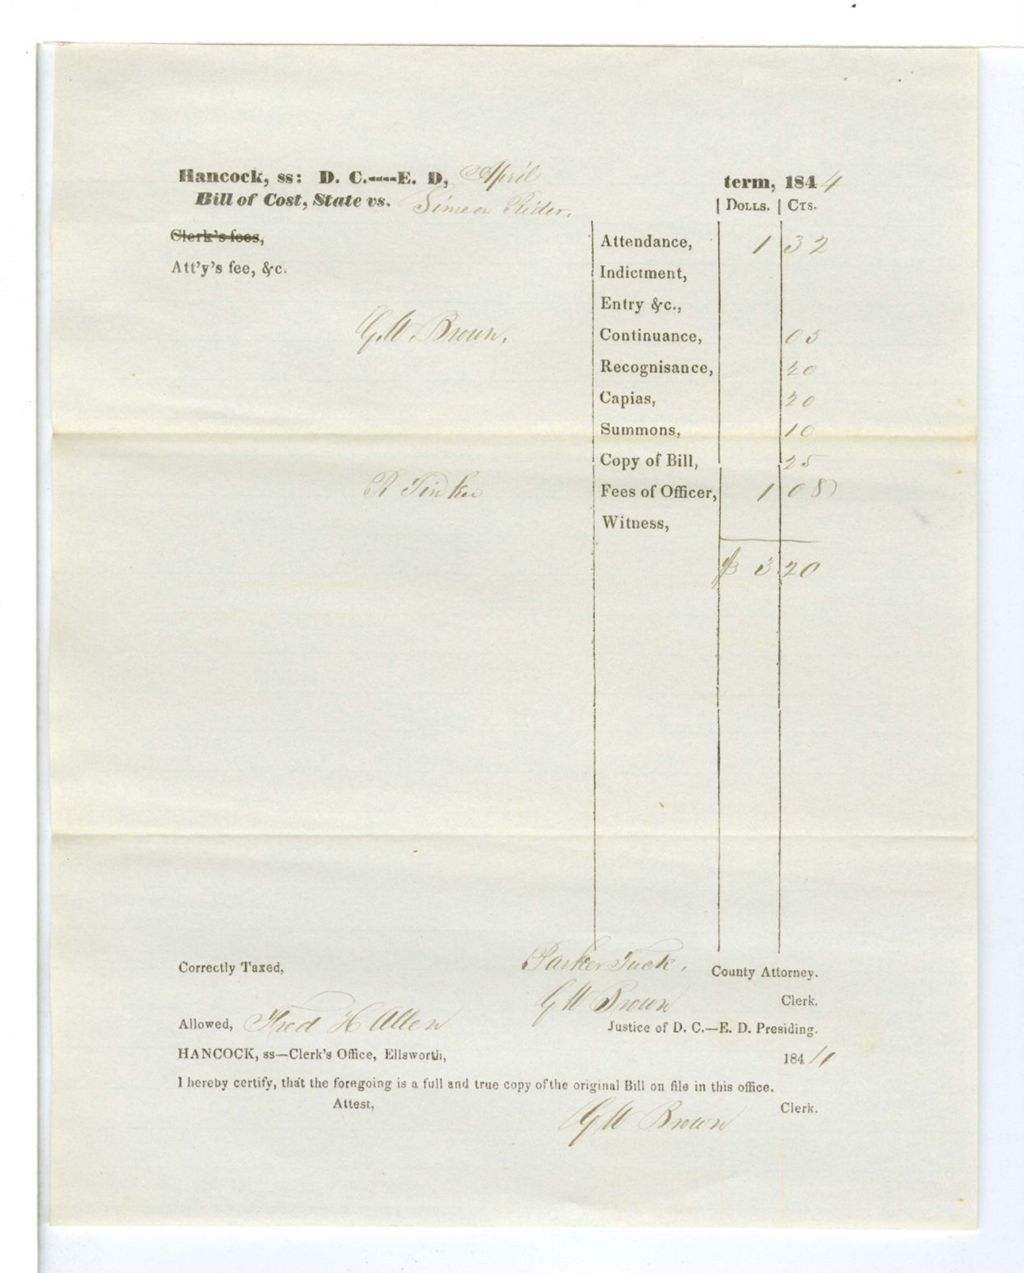 Hancock, ss: D. C.----E. D, April term, 1844
Bill of Cost, State vs. Simeon Rider. | Dolls. | Cts.
Clerk's fees, Attendance, 1 32
Att'y's fee, &c. Indictment,
Entry &c.,
G. W. Brown. Continuance, 05
Recognisance, 20
Capias, 20
Summons, 10
Copy of Bill, 25
R Tinker Fees of Officer, 1 08
Witness,
$ 3 20
Correctly Taxed, Parker Tuck. County Attorney.
G W Brown Clerk.
Allowed, Fred H Allen Justice of D. C.—E. D. Presiding.
HANCOCK, ss—Clerk's Office, Ellsworth, 184
I hereby certify, that the foregoing is a full and true copy of the original Bill on file in this office.
Attest, G W Brown Clerk.